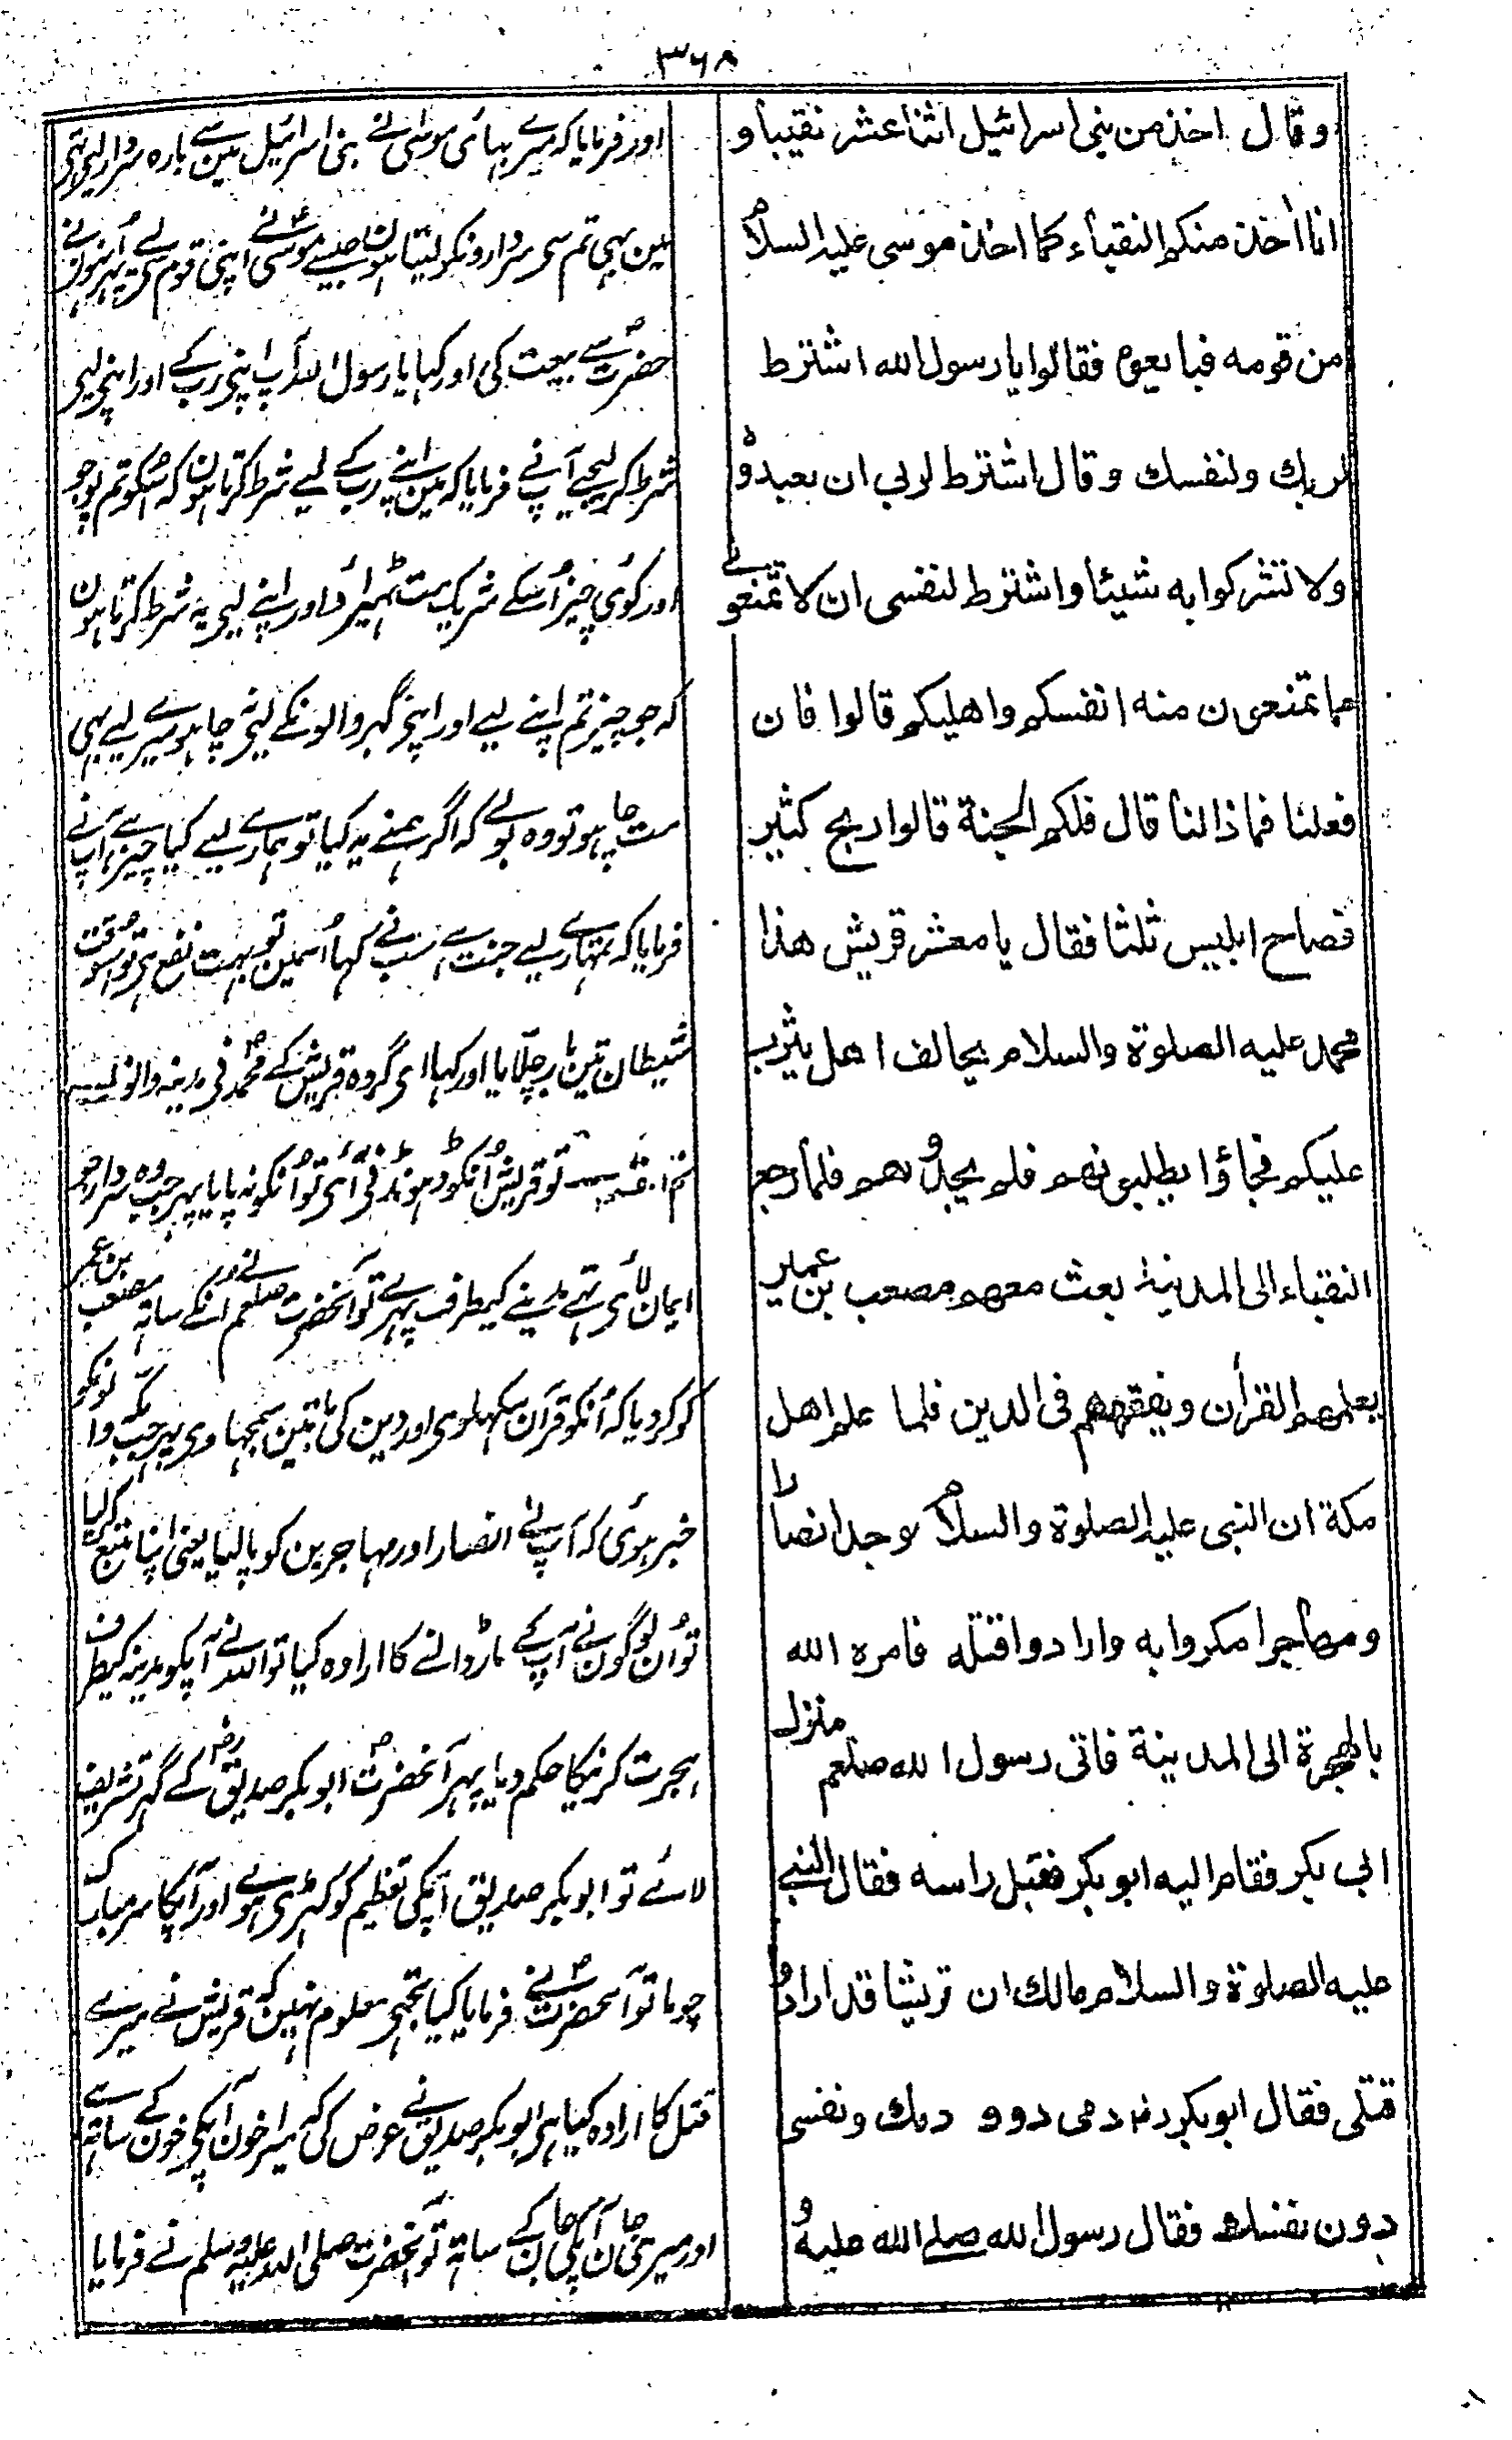 ۳۶۸
وقال اخذ من بنی اسرائیل اثنا عشر نقیبا و
انا اٰخذ منکم النقباء کما اخذ موسی علیہ السلام
من قومه فبایعوہ فقالوا یا رسول الله اشترط
لربك ولنفسك وقال اشترط لربی ان تعبدوہ
ولا تشرکوا به شیئا واشترط لنفسی ان لا تمنعونی
مما تمنعون منه انفسکم واھلیکم قالوا فان
فعلنا فما ذا لنا قال فلکم الجنة قالوا ربح کثیر
فصاح ابلیس ثلثا فقال یا معشر قریش ھذا
محمد علیه الصلوة والسلام یحالف اھل یثرب
علیکم فجاؤا یطلبونھم فلم یجدوھم فلما رجع
النقباء الی المدینة بعث معھم مصعب بن عمیر
یعلمھم القرأن ویفقھھم فی الدین فلما علم اھل
مکة ان النبی علیہ الصلوة والسلام وجد انصارا
ومھاجرا مکروا به وارادوا قتله فامرہ الله
بالھجرة الی المدینة فاتی رسول الله صلعم منزل
ابی بکر فقام الیه ابو بکر فقبل راسه فقال النبی
علیه الصلوة والسلام مالك ان قریشا قد ارادوا
قتلی فقال ابو بکر دمی دون دمك ونفسی
دون نفسك فقال رسول الله صلے الله علیه و
اور فرمایا کہ میرے بہائی موسٰی نے بنی اسرائیل مین سے بارہ سردار لیے تہے
مین بہی تم سے سردارونکو لیتا ہون جیسے موسٰی نے اپنی قوم سے لیے پہر اُنہون نے
حضرت سے بیعت کی اور کہا یا رسول اللہ آپ اپنی رب کے اور اپنے لیے
شرط کر لیجے آپ نے فرمایا کہ مین اپنے رب کے لیے شرط کرتا ہون کہ اُسکو تم پوجو
اور کوئی چیز اُسکے شریک مت ٹہیراؤ اور اپنے لیے یہ شرط کرتا ہون
کہ جو چیز تم اپنے لیے اور اپنے گہر والونکے لیے نہ چاہو میرے لیے بہی
مت چاہو تو وہ بولے کہ اگر ہمنے یہ کیا تو ہمارے لیے کیا چیز ہے آپ نے
فرمایا کہ تمہارے لیے جنت ہے سب نے کہا اُسمین تو بہت نفع ہے تو اُسوقت
شیطان تین بار چلّایا اور کہا ای گروہ قریش کے محمد نے مدینہ والونسے
تو قریش اُنکو ڈہونڈنے آئی تو اُنکو نہ پایا پہر جب وہ سردار جو
ایمان لائے تہے مدینے کیطرف پہرے تو آنحضرت صلعم نے انکے ساتہ مصعب بن عمیر
کو کر دیا کہ اُنکو قرآن سکہلاوے اور دین کی باتین سمجہاوے پہر جب مکہ والونکو
خبر ہوئی کہ آپ نے انصار اور مہاجرین کو پا لیا یعنی اپنا متبع کر لیا
تو اُن لوگون نے آپ کے مار ڈالنے کا ارادہ کیا تو اللہ نے آپکو مدینہ کیطرف
ہجرت کرنیکا حکم دیا پہر آنحضرت ابو بکر صدیق رضہ کے گہر تشریف
لائے تو ابو بکر صدیق آپکی تعظیم کو کہڑے ہوئے اور آپکا سر مبارک
چوما تو آنحضرت نے فرمایا کیا تجہے معلوم نہین کہ قریش نے میرے
قتل کا ارادہ کیا ہے ابو بکر صدیق نے عرض کی کہ میرا خون آپکے خون کے ساتہ ہے
اور میری جان آپکی جان کے ساتہ تو آنحضرت صلی اللہ علیہ وسلم نے فرمایا